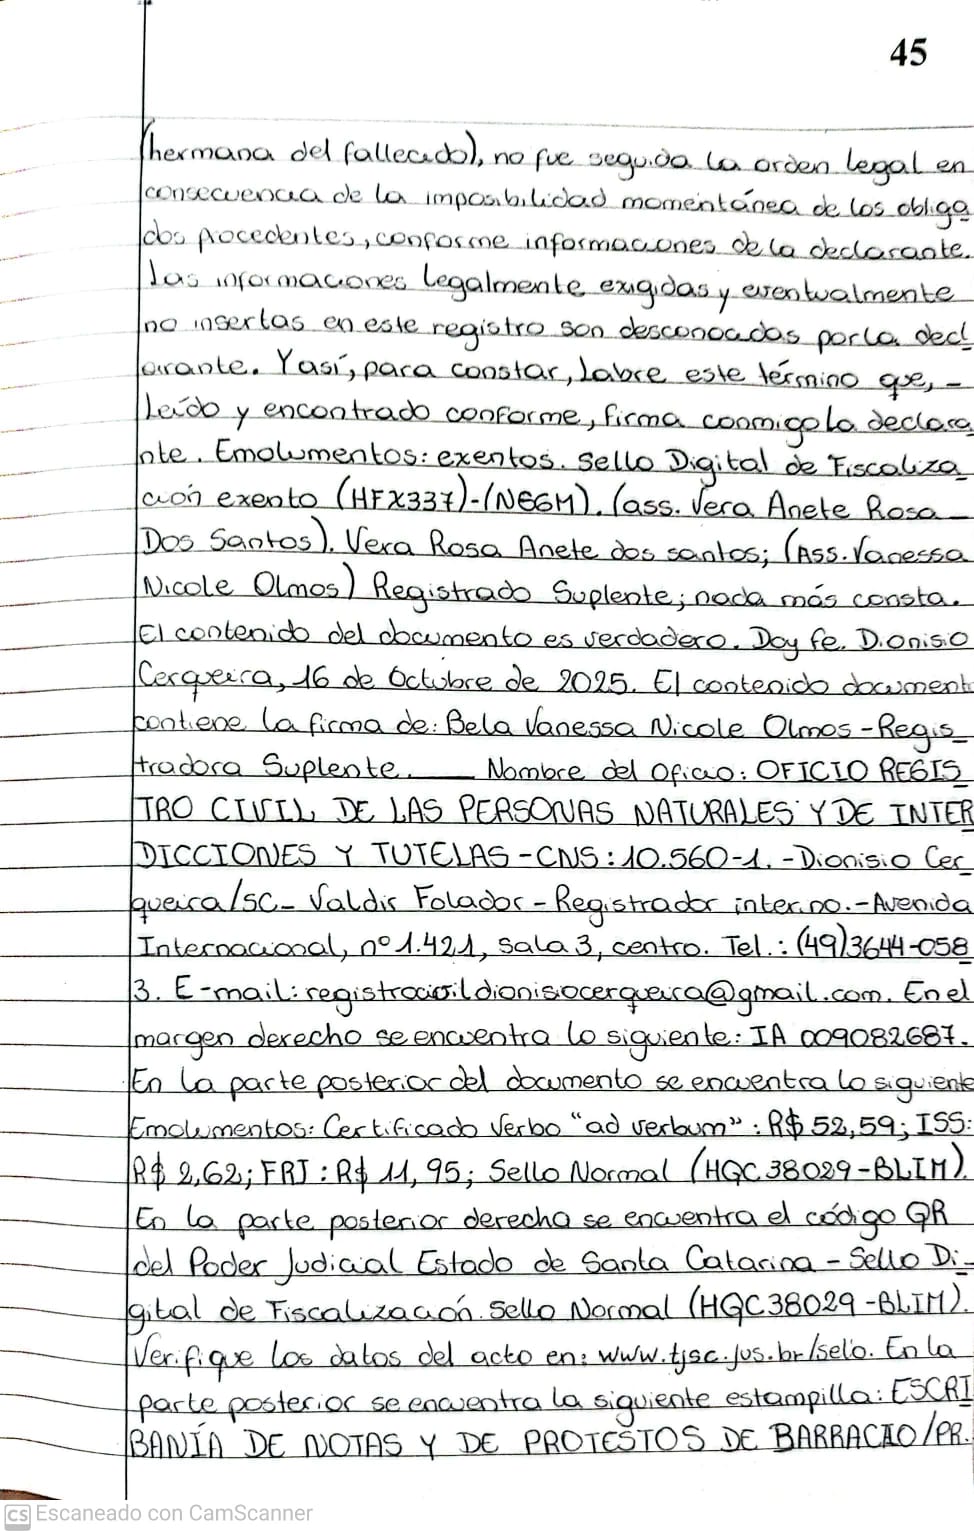 45
(hermana del fallecido), no fue seguida la orden legal en
consecuencia de la imposibilidad momentánea de los obliga
dos procedentes, conforme informaciones de la declarante.
Las informaciones legalmente exigidas y eventualmente
no insertas en este registro son desconocidas por la decl
arante. Y así, para constar, labre este término que, -
leído y encontrado conforme, firma conmigo la declara
nte. Emolumentos: exentos. Sello Digital de Fiscaliza
ción exento (HFX337)-(NEGM). (ass. Vera Anete Rosa
Dos Santos). Vera Rosa Anete dos santos; (Ass. Vanessa
Nicole Olmos) Registrado Suplente; nada más consta.
El contenido del documento es verdadero. Doy fe. Dionisio
Cerqueira, 16 de Octubre de 2025. El contenido document
contiene la firma de: Bela Vanessa Nicole Olmos - Regis
tradora Suplente. ___ Nombre del oficio: OFICIO REGIS
TRO CIVIL DE LAS PERSONAS NATURALES Y DE INTER
DICCIONES Y TUTELAS - CNS: 10.560-1. - Dionisio Cer
queira/SC_ Valdir Folador - Registrador interino. - Avenida
Internacional, nº 1.421, sala 3, centro. Tel.: (49)3644-058
3. E-mail: registrocivildionisiocerqueira@gmail.com. En el
margen derecho se encuentra lo siguiente: IA 009082687.
En la parte posterior del documento se encuentra lo siguiente
Emolumentos: Certificado Verbo "ad verbum": R$ 52,59; ISS:
R$ 2,62; FRJ: R$ 11,95; Sello Normal (HQC38029-BLIM).
En la parte posterior derecha se encuentra el código QR
del Poder Judicial Estado de Santa Catarina - Sello Di-
gital de Fiscalización. Sello Normal (HQC38029-BLIM).
Verifique los datos del acto en: www.tjsc.jus.br/selo. En la
parte posterior se encuentra la siguiente estampilla: ESCRI
BANÍA DE NOTAS Y DE PROTESTOS DE BARRACAO/PR.
CS Escaneado con CamScanner